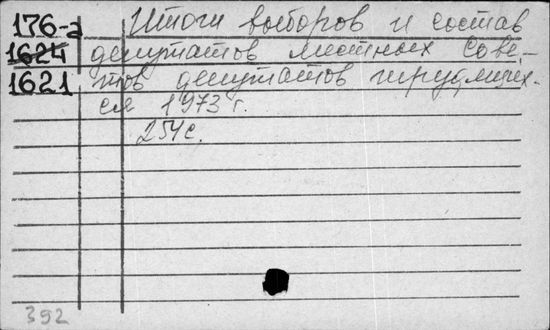 176-а Итоги выборов и состав
1624 депутатов местных Сове-
1621 тов депутатов трудящих-
ся 1973 г.
254 с.
392